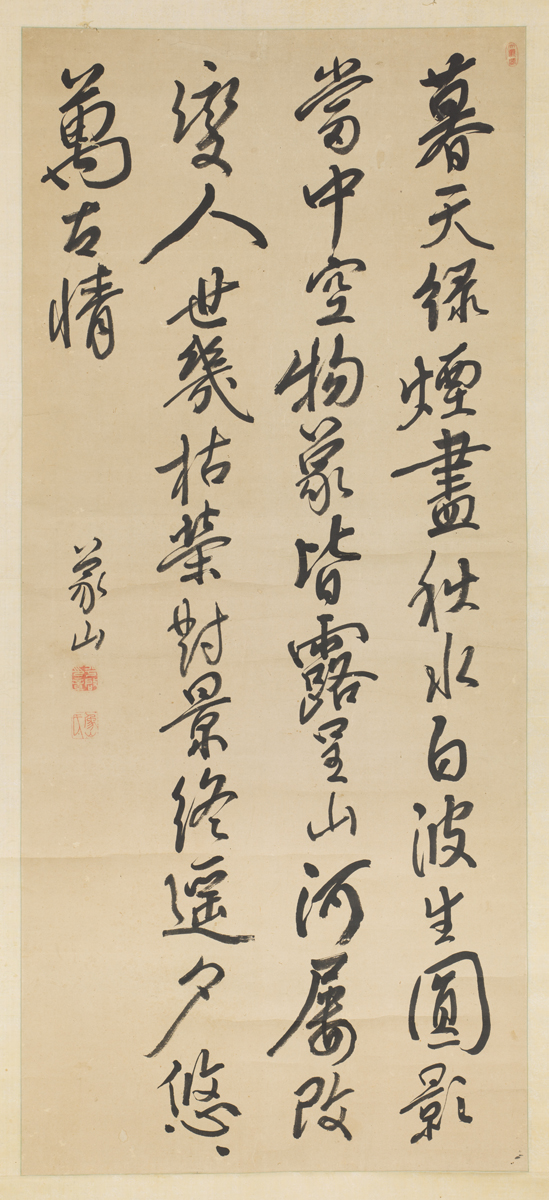 暮天緑煙盡秋水白波生圓影
當中空物象皆露呈山河屢改
變人世幾枯榮對景終遥夕悠〻
萬古情
象山